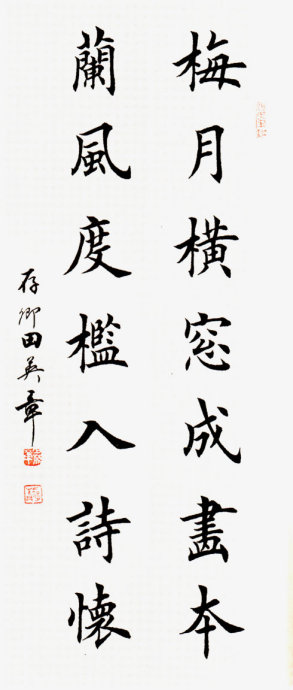 梅月橫窓成畫本
蘭風度檻入詩懷
存卿田英章